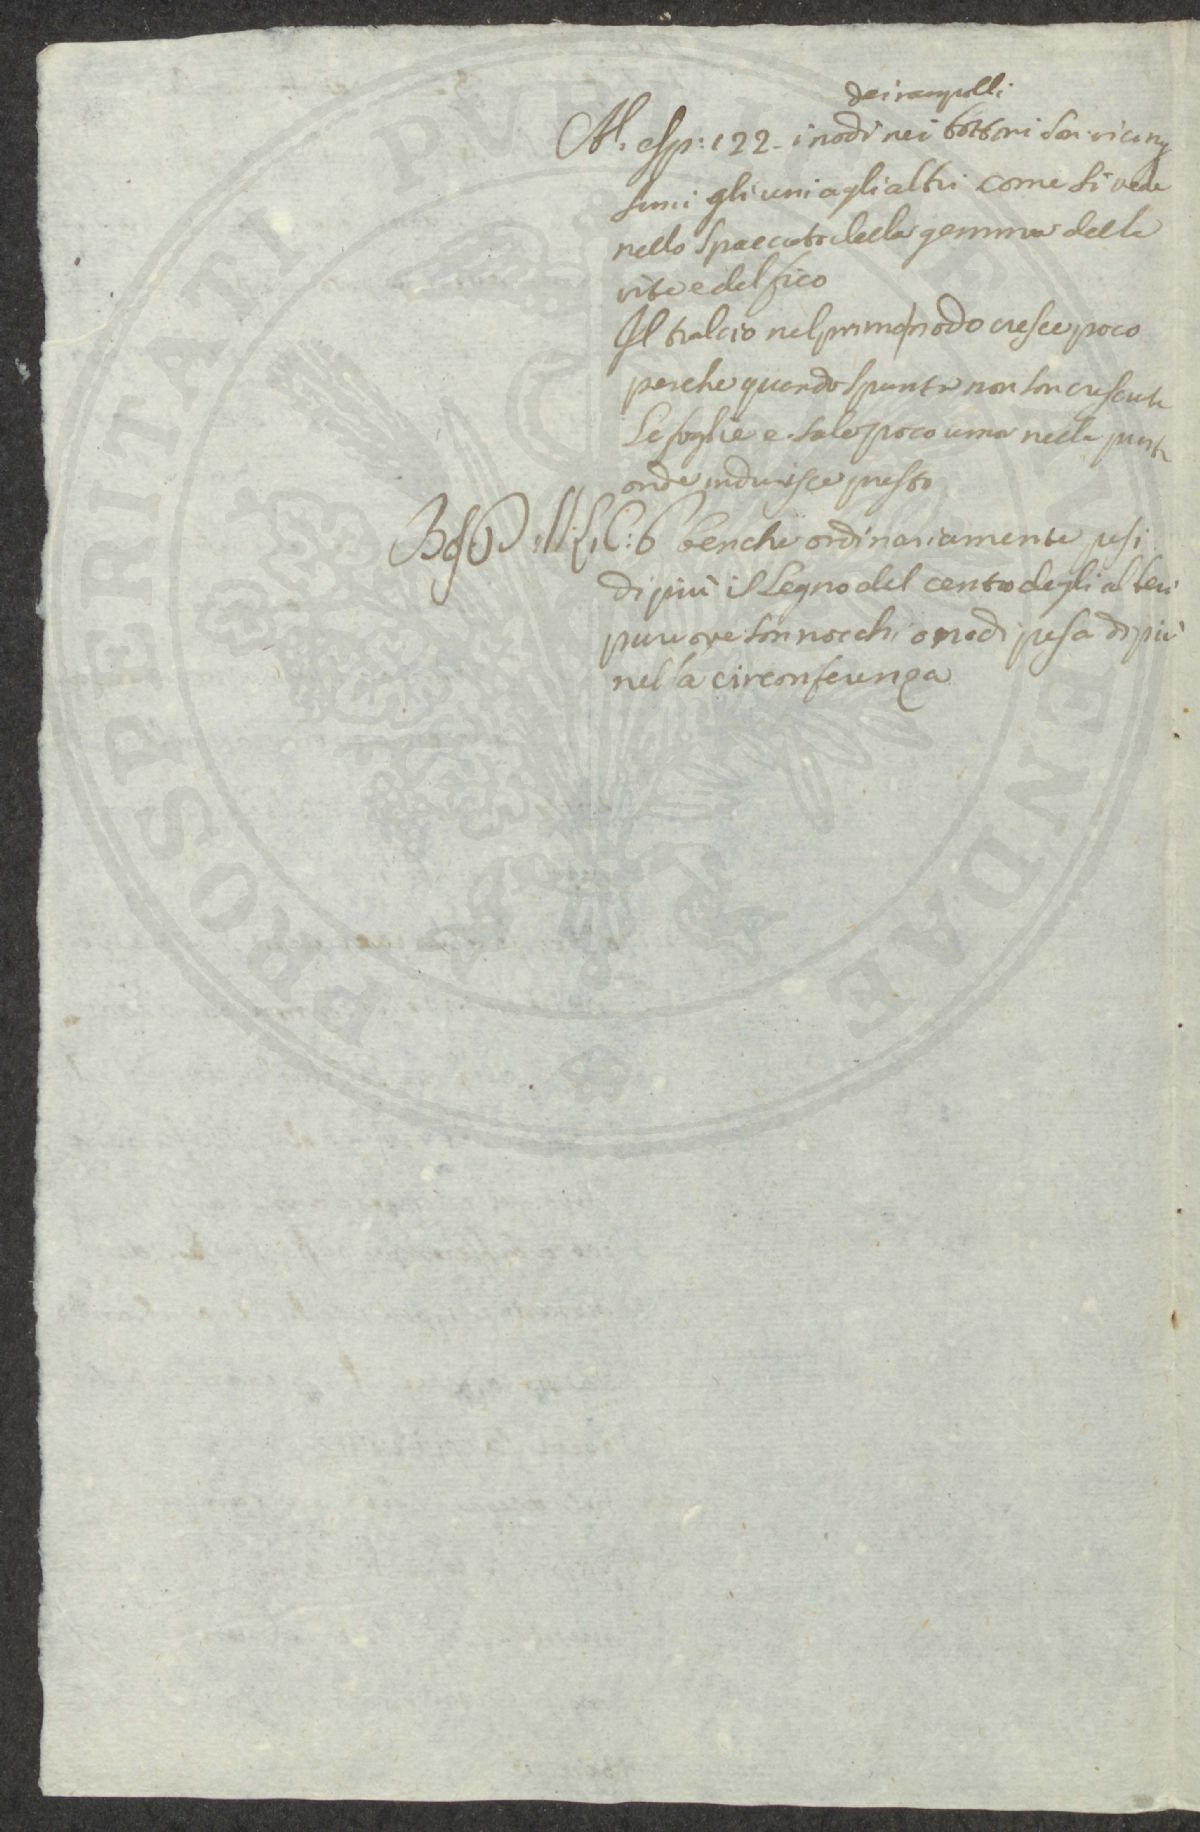 dei rampolli
Al. esp: 122 - i nodi nei bottoni son vicinis
simi gli uni agli altri come si vede
nello spaccato della gemma della
vite e del fico
Il tralcio nel primo nodo cresce poco
perche quando spunta non son cresciute
le foglie e sale poco umor nella punta
onde indurisce presto
C: 6 benche ordinariamente pesi
di più il legno del centro degli alberi
pure ove son nocchi o nodi pesa di più
nella circonferenza
PROSPERITATI PUBLICAE AUGENDAE